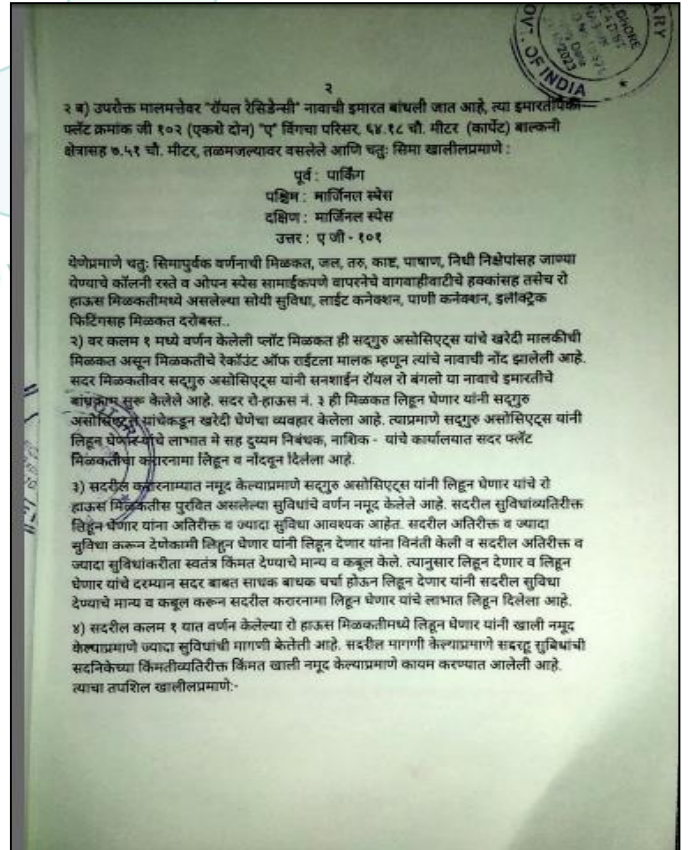 OF INDIA
२
२ ब) उपरोक्त मालमत्तेवर "रॉयल रेसिडेन्सी" नावाची इमारत बांधली जात आहे, त्या इमारतीपैकी
फ्लॅट क्रमांक जी १०२ (एकशे दोन) "ए" विंगचा परिसर, ६४.१८ चौ. मीटर (कार्पेट) बाल्कनी
क्षेत्रासह ७.५१ चौ. मीटर, तळमजल्यावर वसलेले आणि चतुः सिमा खालीलप्रमाणे :
पूर्व : पार्किंग
पश्चिम : मार्जिनल स्पेस
दक्षिण : मार्जिनल स्पेस
उत्तर : ए जी - १०१
येणेप्रमाणे चतुः सिमापुर्वक वर्णनाची मिळकत, जल, तरु, काष्ट, पाषाण, निधी निक्षेपांसह जाण्या
येण्याचे कॉलनी रस्ते व ओपन स्पेस सामाईकपणे वापरनेचे वागवाहीवाटीचे हक्कांसह तसेच रो
हाऊस मिळकतीमध्ये असलेल्या सोयी सुविधा, लाईट कनेक्शन, पाणी कनेक्शन, इलेक्ट्रिक
फिटिंगसह मिळकत दरोबस्त..
२) वर कलम १ मध्ये वर्णन केलेली प्लॉट मिळकत ही सद्गुरु असोसिएट्स यांचे खरेदी मालकीची
मिळकत असून मिळकतीचे रेकॉउंट ऑफ राईटला मालक म्हणून त्यांचे नावाची नोंद झालेली आहे.
सदर मिळकतीवर सद्गुरु असोसिएट्स यांनी सनशाईन रॉयल रो बंगलो या नावाचे इमारतीचे
बांधकाम सुरू केलेले आहे. सदर रो-हाऊस नं. ३ ही मिळकत लिहून घेणार यांनी सद्गुरु
असोसिएट्स यांचेकडून खरेदी घेणेचा व्यवहार केलेला आहे. त्याप्रमाणे सद्गुरु असोसिएट्स यांनी
लिहून घेणार यांचे लाभात मे सह दुय्यम निबंधक, नाशिक - यांचे कार्यालयात सदर फ्लॅट
मिळकतीचा करारनामा लिहून व नोंदवून दिलेला आहे.
३) सदरील करारनाम्यात नमूद केल्याप्रमाणे सद्गुरु असोसिएट्स यांनी लिहून घेणार यांचे रो
हाऊस मिळकतीस पुरवित असलेल्या सुविधांचे वर्णन नमूद केलेले आहे. सदरील सुविधांव्यतिरीक्त
लिहून घेणार यांना अतिरीक्त व ज्यादा सुविधा आवश्यक आहेत. सदरील अतिरीक्त व ज्यादा
सुविधा करून देणेकामी लिहून घेणार यांनी लिहून देणार यांना विनंती केली व सदरील अतिरीक्त व
ज्यादा सुविधांकरीता स्वतंत्र किंमत देण्याचे मान्य व कबूल केले. त्यानुसार लिहून देणार व लिहून
घेणार यांचे दरम्यान सदर बाबत साधक बाधक चर्चा होऊन लिहून देणार यांनी सदरील सुविधा
देण्याचे मान्य व कबूल करून सदरील करारनामा लिहून घेणार यांचे लाभात लिहून दिलेला आहे.
४) सदरील कलम १ यात वर्णन केलेल्या रो हाऊस मिळकतीमध्ये लिहून घेणार यांनी खाली नमूद
केल्याप्रमाणे ज्यादा सुविधांची मागणी केतेती आहे. सदरील मागणी केल्याप्रमाणे सदरहू सुबिधांची
सदनिकेच्या किंमतीव्यतिरीक्त किंमत खाली नमूद केल्याप्रमाणे कायम करण्यात आलेली आहे.
त्याचा तपशिल खालीलप्रमाणे:-